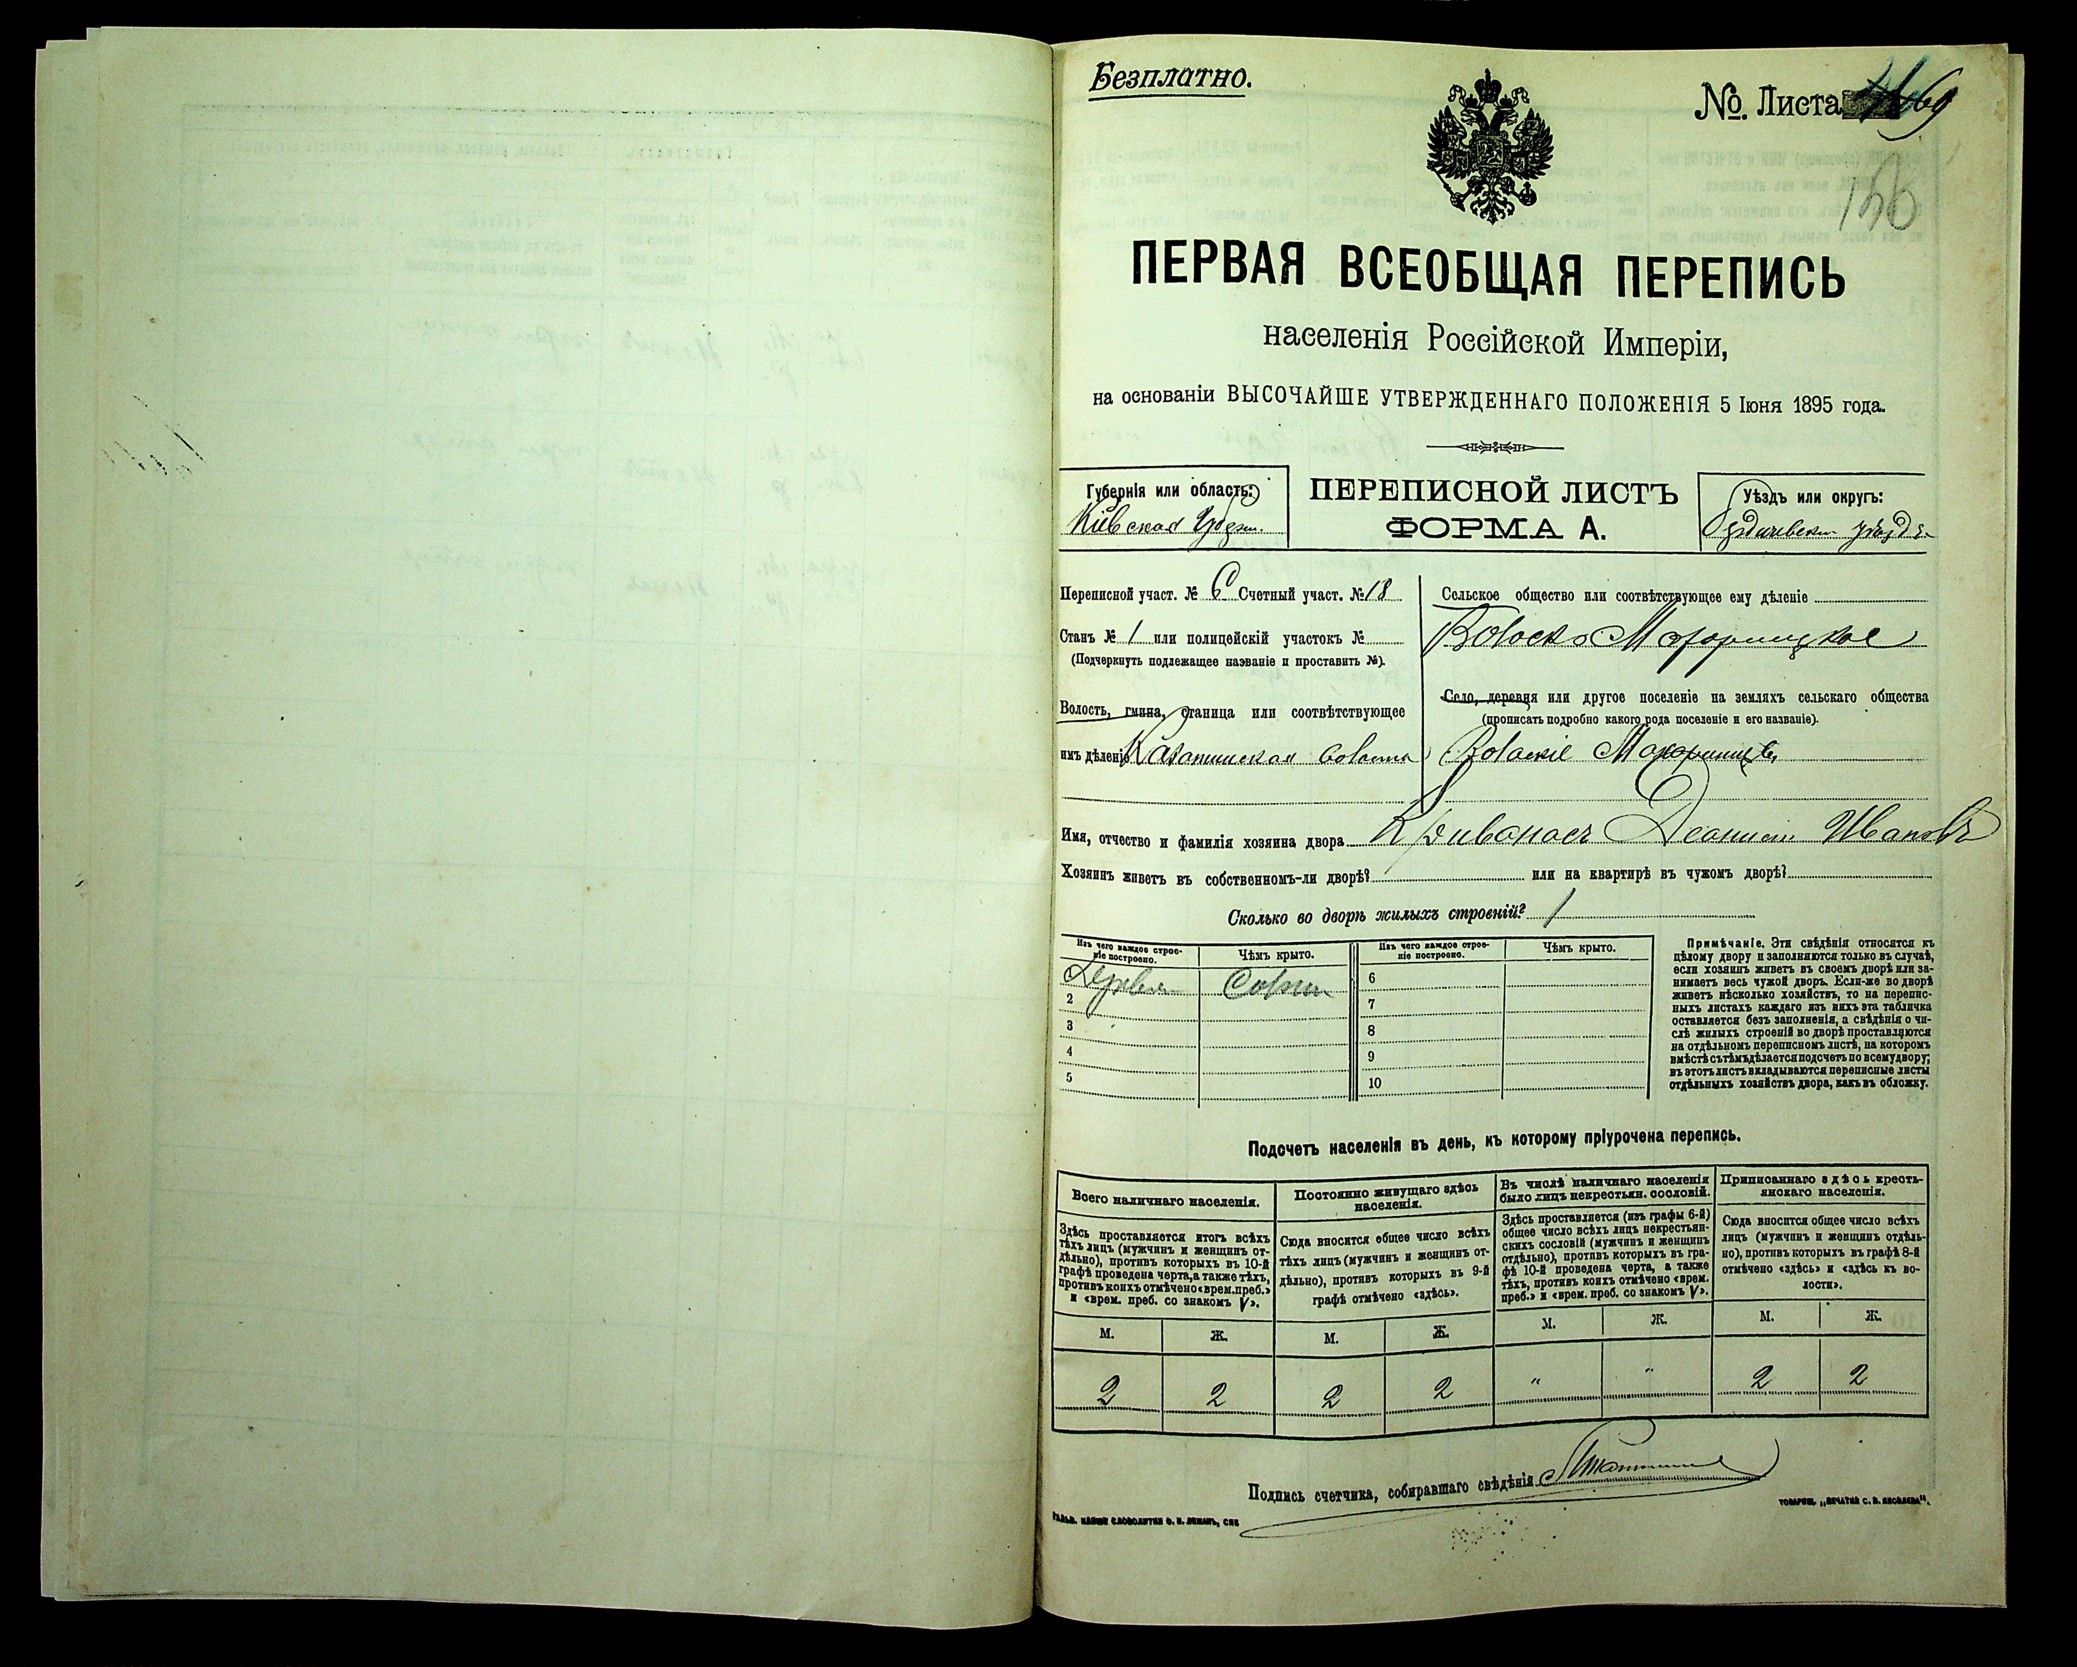 Безплатно.
№. Листа 69
156
ПЕРВАЯ ВСЕОБЩАЯ ПЕРЕПИСЬ
населенія Россійской Имперіи,
на основаніи ВЫСОЧАЙШЕ УТВЕРЖДЕННАГО ПОЛОЖЕНІЯ 5 Іюня 1895 года.
Губернія или область:
Кіевская
ПЕРЕПИСНОЙ ЛИСТЪ
ФОРМА А.
Уѣздъ или округъ:
Переписной участ. № 6 Счетный участ. № 18
Станъ № 1 или полицейскій участокъ №
(Подчеркнуть подлежащее названіе и проставить №).
Волость, гмина, станица или соотвѣтствующее
имъ дѣленіе
Сельское общество или соотвѣтствующее ему дѣленіе
Село, деревня или другое поселеніе на земляхъ сельскаго общества
(прописать подробно какого рода поселеніе и его названіе).
Имя, отчество и фамилія хозяина двора Кривоносъ Деонисій Ивановъ
Хозяинъ живетъ въ собственномъ-ли дворѣ? или на квартирѣ въ чужомъ дворѣ?
Сколько во дворѣ жилыхъ строеній? 1
Изъ чего каждое строе-
ніе построено.
Чѣмъ крыто.
Изъ чего каждое строе-
ніе построено.
Чѣмъ крыто.
6
2
7
3
8
4
9
5
10
Примѣчаніе. Эти свѣдѣнія относятся къ
цѣлому двору и заполняются только въ случаѣ,
если хозяинъ живетъ въ своемъ дворѣ или за-
нимаетъ весь чужой дворъ. Если-же во дворѣ
живетъ нѣсколько хозяйствъ, то на перепис-
ныхъ листахъ каждаго изъ нихъ эта табличка
оставляется безъ заполненія, а свѣдѣнія о чи-
слѣ жилыхъ строеній во дворѣ проставляются
на отдѣльномъ переписномъ листѣ, на которомъ
вмѣстѣ съ тѣмъ дѣлается подсчетъ по всему двору;
въ этотъ листъ вкладываются переписные листы
отдѣльныхъ хозяйствъ двора, какъ въ обложку.
Подсчетъ населенія въ день, къ которому пріурочена перепись.
Всего наличнаго населенія.
Здѣсь проставляется итогъ всѣхъ
тѣхъ лицъ (мужчинъ и женщинъ от-
дѣльно), противъ которыхъ въ 10-й
графѣ проведена черта, а также тѣхъ,
противъ коихъ отмѣчено «врем. преб.»
и «врем. преб. со знакомъ V».
Постоянно живущаго здѣсь
населенія.
Сюда вносится общее число всѣхъ
тѣхъ лицъ (мужчинъ и женщинъ от-
дѣльно), противъ которыхъ въ 9-й
графѣ отмѣчено «здѣсь».
Въ числѣ наличнаго населенія
было лицъ некрестьян. сословій.
Здѣсь проставляется (изъ графы 6-й)
общее число всѣхъ лицъ некрестьян-
скихъ сословій (мужчинъ и женщинъ
отдѣльно), противъ которыхъ въ гра-
фѣ 10-й проведена черта, а также
тѣхъ, противъ коихъ отмѣчено «врем.
преб.» и «врем. преб. со знакомъ V».
Приписаннаго здѣсь кресть-
янскаго населенія.
Сюда вносится общее число всѣхъ
лицъ (мужчинъ и женщинъ отдѣль-
но), противъ которыхъ въ графѣ 8-й
отмѣчено «здѣсь» и «здѣсь къ во-
лости».
М. Ж. М. Ж. М. Ж. М. Ж.
2 2 2 2 " " 2 2
Подпись счетчика, собиравшаго свѣдѣнія
ТОВАРИЩ. „ПЕЧАТНЯ С. П. ЯКОВЛЕВА“.